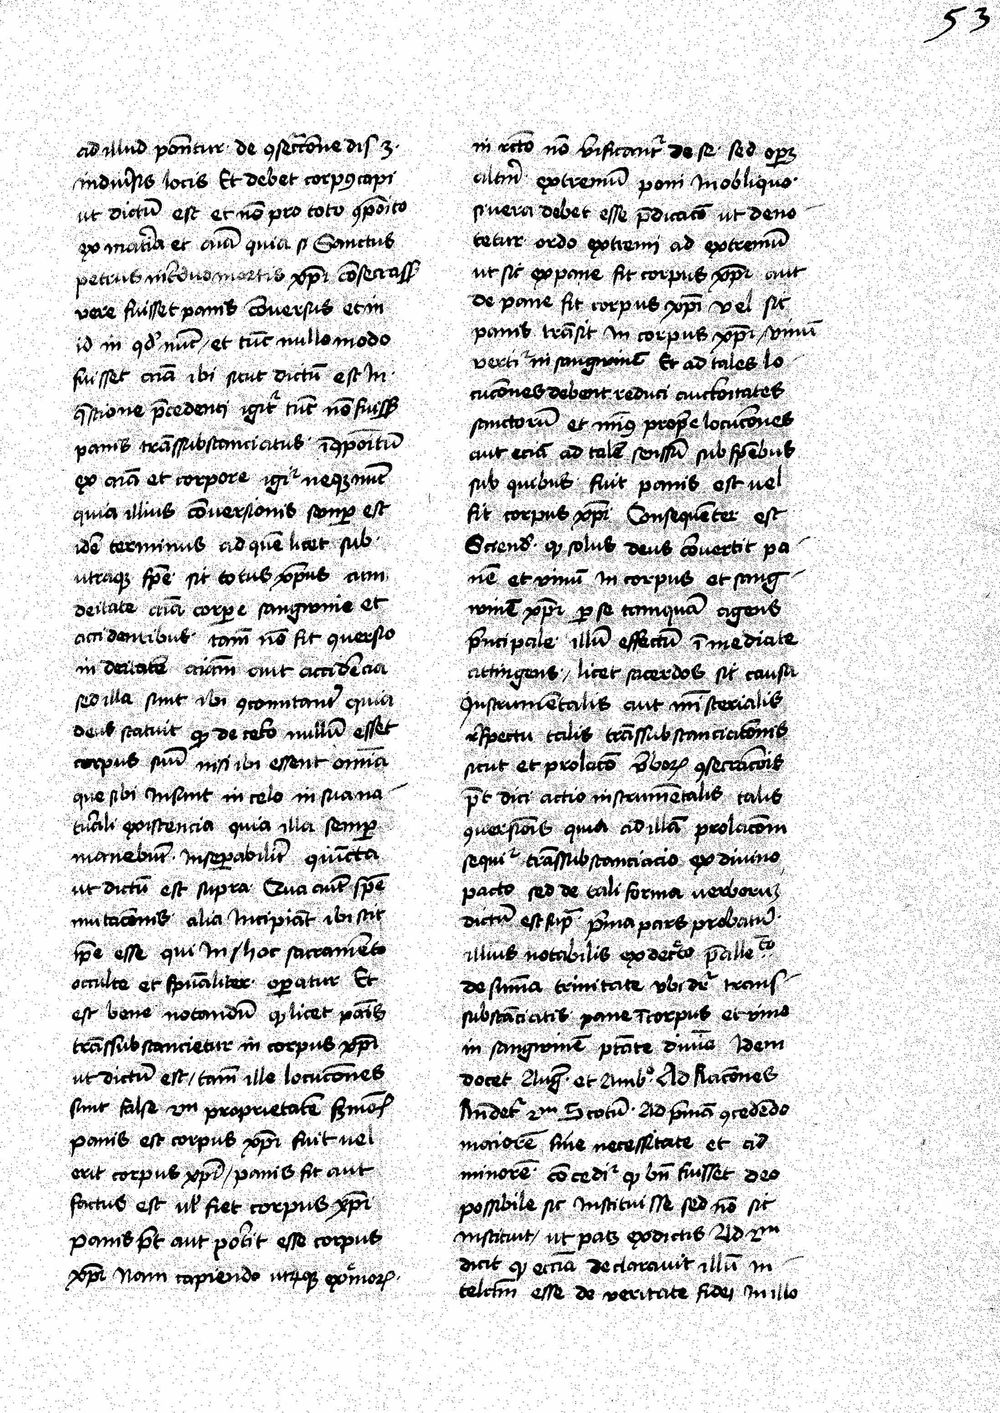 53
ad illud ponitur de qsecracõne dis 3
in diũsis locis Et debet corpꝰ capi
ut dictũ est et nõ pro toto cpõito
ex materia et aĩa quia si Sanctus
petrus in triduo mortis xp̃i cõsecrass
vere fuisset panis cõversus et in
id in qd' nũc / et tũc nullo modo
fuisset aĩa ibi sicut dictũ est In
q̃stione p̃cedenti igit' tũc nõ fuiss
panis trãssubstanciatus ĩ cpõitũ
ex aĩa et corpore igit' neqʒ nũc
quia illius cõversionis semp est
idẽ terminus ad quẽ licet sub
utraqʒ sp̃e sit totus xp̃us cum
deitate aĩa corpe sangwine et
accidentibus tam̃ nõ fit qversio
in deitatẽ aĩam aut accidẽcia
sed illa sunt ibi qcomitanť quia
deus statuit qꝫ de cet̃o nullũ esset
corpus suũ nisi ibi essent oĩmia
que sibi insunt in celo in sua na-
tũrali existencia quia illa semp
manebũt Inseperabiliť qiũcta
ut dictũ est supra Qua aũt sp̃e
mutacõnis alia Incipiãt ibi scit
sp̃e esse qui In hoc sacramẽto
occulte et spũaliter operatur Et
est bene notandũ qꝫ licet panis
trãssubstancietur in corpus xp̃i
ut dictũ est / tam̃ ille locucõnes
sunt false vm proprietatẽ sermõs
panis est corpus xp̃i fuit vel
erit corpus xp̃i / panis fit aut
factus est ul' fiet corpus xp̃i
panis p̃t aut poťit esse corpus
xp̃i Nam capiendo utrũqʒ ext̃moꝝ
in rcto nõ vificant' de se sed opʒ
altm̃ extremũ poni In obliquo
si vera debet esse p̃dicacõ ut deno-
tetur ordo extremi ad extremũ
ut sic ex pane fit corpus xp̃i aut
de pane fit corpus xp̃i vel sic
panis trãsit In corpus xp̃i / vinũ
vertit' in sangwinẽ Et ad tales lo-
cucõnes debent reduci auctoitates
sanctorũ et minꝰ prop̃e locucõnes
aut eciã ad talẽ sensũ sub sp̃ebus
sub quibus fuit panis est vel
fit corpus xp̃i Consequẽter est
Sciend' qꝫ solus deus cõvertit pa-
nẽ et vinũ In corpus et sang-
winẽ xp̃i p se tamquã agens
p̃ncipale illũ effectũ ĩmediate
attingens / licet sacerdos sit causa
Instrumẽtalis aut mĩsterialis
respectu talis trãssubstanciacõnis
sicut et prolacõ v̉boꝝ qsecracõis
p̃t dici actio instrumẽtalis talis
qversiõis quia ad illã prolacõm
sequit' trãssubstanciacio ex divino
pacto sed de tali forma verborum
dictũ est sup̃ p̃ma pars probatur
illius notabilis ex dec̃to p̃alleto
de sum̃a trinitate ubi dr̃ trans-
substanciatis pane ĩ corpus et vino
in sangwinẽ p̃tate diuĩa Idem
docet Aug̃ et Ambº Ad Racõnes
Andet' vm Scotũ Ad p̃mã qcedẽdo
maiorẽ sine necessitate et ad
minorẽ cõcedit' qꝫ bñ fuisset deo
possibile sic Instituisse sed nõ sic
instituit / ut patʒ ex dictis Ad 2m
dicit qꝫ ecciã declaravit illũ in-
telctm̃ esse de veritate fidei In illo